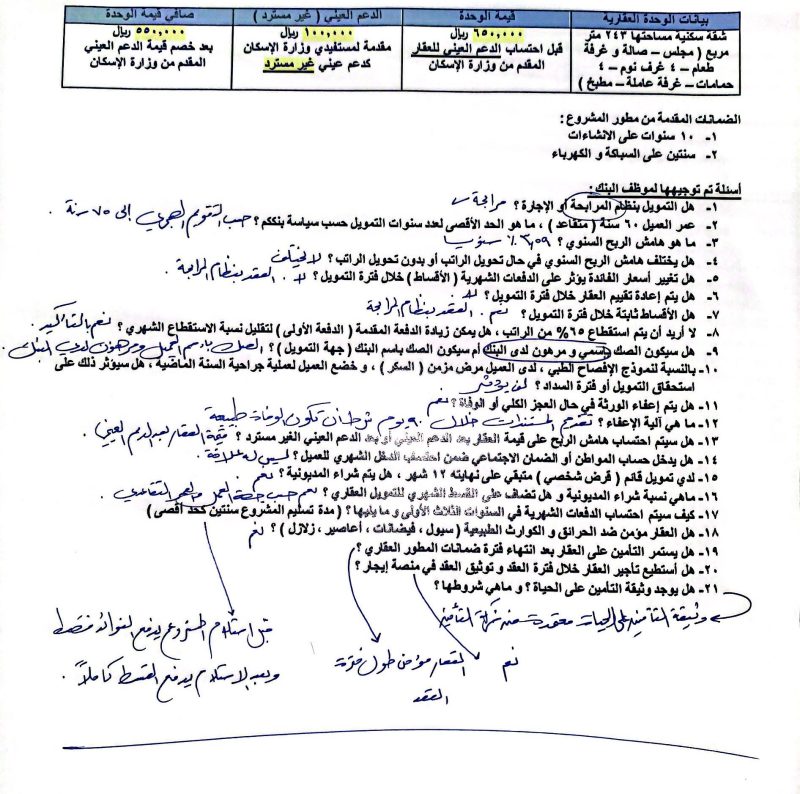 بيانات الوحدة العقارية | قيمة الوحدة | الدعم العيني ( غير مسترد ) | صافي قيمة الوحدة
شقة سكنية مساحتها ٢٤٣ متر | ٦٥٠,٠٠٠ ريال | ١٠٠,٠٠٠ ريال | ٥٥٠,٠٠٠ ريال
مربع ( مجلس – صالة و غرفة | قبل احتساب الدعم العيني للعقار | مقدمة لمستفيدي وزارة الإسكان | بعد خصم قيمة الدعم العيني
طعام – ٤ غرف نوم – ٤ | المقدم من وزارة الإسكان | كدعم عيني غير مسترد | المقدم من وزارة الإسكان
حمامات – غرفة عاملة – مطبخ )
الضمانات المقدمة من مطور المشروع :
١- ١٠ سنوات على الانشاءات
٢- سنتين على السباكة و الكهرباء
أسئلة تم توجيهها لموظف البنك :
١- هل التمويل بنظام المرابحة أو الإجارة ؟ مرابحة
٢- عمر العميل ٦٠ سنة ( متقاعد ) ، ما هو الحد الأقصى لعدد سنوات التمويل حسب سياسة بنككم ؟ حسب التقويم الهجري إلى ٧٥ سنة .
٣- ما هو هامش الربح السنوي ؟ ٣,٥٩ ٪ سنويا
٤- هل يختلف هامش الربح السنوي في حال تحويل الراتب أو بدون تحويل الراتب ؟ لا يختلف
٥- هل تغيير أسعار الفائدة يؤثر على الدفعات الشهرية ( الأقساط ) خلال فترة التمويل ؟ لا . العقد بنظام المرابحة .
٦- هل يتم إعادة تقييم العقار خلال فترة التمويل ؟ لا
٧- هل الأقساط ثابتة خلال فترة التمويل ؟ نعم . العقد بنظام المرابحة
٨- لا أريد أن يتم استقطاع ٦٥% من الراتب ، هل يمكن زيادة الدفعة المقدمة ( الدفعة الأولى ) لتقليل نسبة الاستقطاع الشهري ؟ نعم بالتأكيد
٩- هل سيكون الصك بإسمي و مرهون لدى البنك أم سيكون الصك باسم البنك ( جهة التمويل ) ؟ الصك باسم العميل ومرهون لدى البنك .
١٠- بالنسبة لنموذج الإفصاح الطبي ، لدى العميل مرض مزمن ( السكر ) ، و خضع العميل لعملية جراحية السنة الماضية ، هل سيؤثر ذلك على
استحقاق التمويل أو فترة السداد ؟ لن يؤثر
١١- هل يتم إعفاء الورثة في حال العجز الكلي أو الوفاة ؟ نعم
١٢- ما هي آلية الإعفاء ؟ تقديم المستندات خلال ٩٠ يوم شرط أن تكون الوفاة طبيعة
١٣- هل سيتم احتساب هامش الربح على قيمة العقار بعد الدعم العيني أو بعد الدعم العيني الغير مسترد ؟ قيمة العقار بعد الدعم العيني
١٤- هل يدخل حساب المواطن أو الضمان الاجتماعي ضمن احتساب الدخل الشهري للعميل ؟ ليس له علاقة .
١٥- لدي تمويل قائم ( قرض شخصي ) متبقي على نهايته ١٢ شهر ، هل يتم شراء المديونية ؟ نعم
١٦- ماهي نسبة شراء المديونية و هل تضاف على القسط الشهري للتمويل العقاري ؟ نعم حسب جهة العمل والعمر التقاعدي .
١٧- كيف سيتم احتساب الدفعات الشهرية في السنوات الثلاث الأولى و ما يليها ؟ ( مدة تسليم المشروع سنتين كحد أقصى )
١٨- هل العقار مؤمن ضد الحرائق و الكوارث الطبيعية ( سيول ، فيضانات ، أعاصير ، زلازل ) ؟ نعم
١٩- هل يستمر التأمين على العقار بعد انتهاء فترة ضمانات المطور العقاري ؟
٢٠- هل أستطيع تأجير العقار خلال فترة العقد و توثيق العقد في منصة إيجار ؟
٢١- هل يوجد وثيقة التأمين على الحياة ؟ و ماهي شروطها ؟
وثيقة التأمين على الحياة معتمدة من شركة التأمين
قبل استلام المشروع يدفع الفوائد فقط
وبعد الاستلام يدفع القسط كاملاً .
نعم
العقار مؤمن طول فترة
العقد